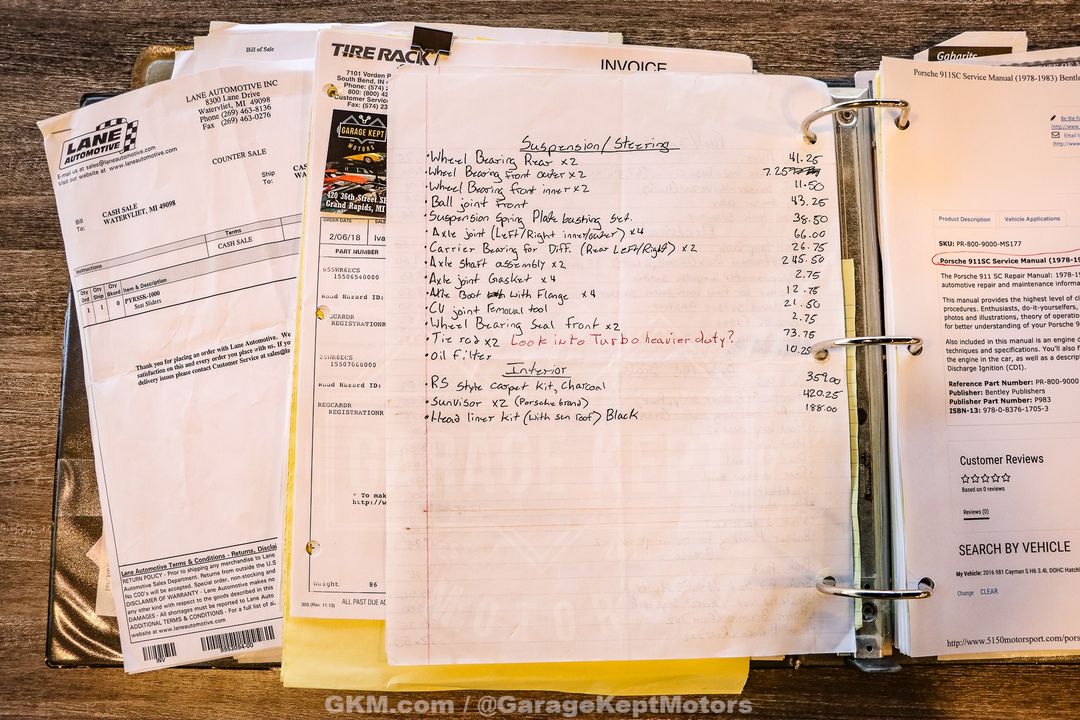 Bill of Sale
LANE AUTOMOTIVE INC
8300 Lane Drive
Watervliet, MI 49098
Phone (269) 463-8136
Fax (269) 463-0276
LANE
AUTOMOTIVE
E-mail us at sales@laneautomotive.com
Visit our website at www.laneautomotive.com
COUNTER SALE
Bill
To:
CASH SALE
WATERVLIET, MI 49098
Ship
To:
CAS
Terms
CASH SALE
Instructions
Qty Ord
Qty Ship
Qty Bkord
Item & Description
1 1 0 PYRSSK-1000
Seat Sliders
Thank you for placing an order with Lane Automotive. We
satisfaction on this and every order you place with us. If yo
delivery issues please contact Customer Service at sales@la
Lane Automotive Terms & Conditions - Returns, Disclai
RETURN POLICY - Prior to shipping any merchandise to Lane
Automotive Sales Department. Returns from outside the U.S
No COD's will be accepted. Special order, non-stocking and
DISCLAIMER OF WARRANTY - Lane Automotive makes no
any other kind with respect to the goods described in this
DAMAGES - All shortages must be reported to Lane Auto
ADDITIONAL TERMS & CONDITIONS - For a full list of
website at www.laneautomotive.com
INV
TIRE RACK
INVOICE
7101 Vorden P
South Bend, IN
Phone: (574)
800: (800)
Customer Service
Fax: (574) 23
GARAGE KEPT
MOTORS
420 36th Street SE
Grand Rapids, MI
ORDER DATE
2/06/18
Iva
PART NUMBER
055WR6ECS
15506540000
Road Hazard ID:
GCARDR
REGISTRATIONR
15507060000
Road Hazard ID:
REGCARDR
REGISTRATIONR
* To mak
http://w
Weight 86
303 (Rev. 11.13)
ALL PAST DUE AC
Suspension/Steering
• Wheel Bearing Rear x2 41.25
• Wheel Bearing Front outer x2 7.25
• Wheel Bearing front inner x2 11.50
• Ball joint front 43.25
• Suspension Spring Plate bushing set. 38.50
• Axle joint (Left/Right inner/outer) x4 66.00
• Carrier Bearing for Diff. (Rear Left/Right) x2 26.75
• Axle shaft assembly x2 245.50
• Axle joint Gasket x4 2.75
• Axle Boot with Flange x4 12.75
• CV joint removal tool 21.50
• Wheel Bearing Seal front x2 2.75
• Tie rod x2 Look into Turbo heavier duty? 73.75
• Oil filter 10.25
Interior
• RS style carpet kit, Charcoal 359.00
• Sunvisor x2 (Porsche brand) 420.25
• Head liner kit (with sun roof) Black 188.00
Gabarits
Porsche 911SC Service Manual (1978-1983) Bentl
Be the fi
(http://www.
Email
(http://ww
Product Description
Vehicle Applications
SKU: PR-800-9000-MS177
Porsche 911SC Service Manual (1978-19
The Porsche 911 SC Repair Manual: 1978-19
automotive repair and maintenance informa
This manual provides the highest level of cl
procedures. Enthusiasts, do-it-yourselfers,
photos and illustrations, theory of operation
for better understanding of your Porsche 9
Also included in this manual is an engine c
techniques and specifications. You'll also f
the engine in the car, as well as a descrip
Discharge Ignition (CDI).
Reference Part Number: PR-800-9000
Publisher: Bentley Publishers
Publisher Part Number: P983
ISBN-13: 978-0-8376-1705-3
Customer Reviews
Based on 0 reviews
Reviews (0)
SEARCH BY VEHICLE
My Vehicle: 2016 981 Cayman S H6 3.4L DOHC Hatchl
Change CLEAR
http://www.5150motorsport.com/pors
GKM.com / @GarageKeptMotors